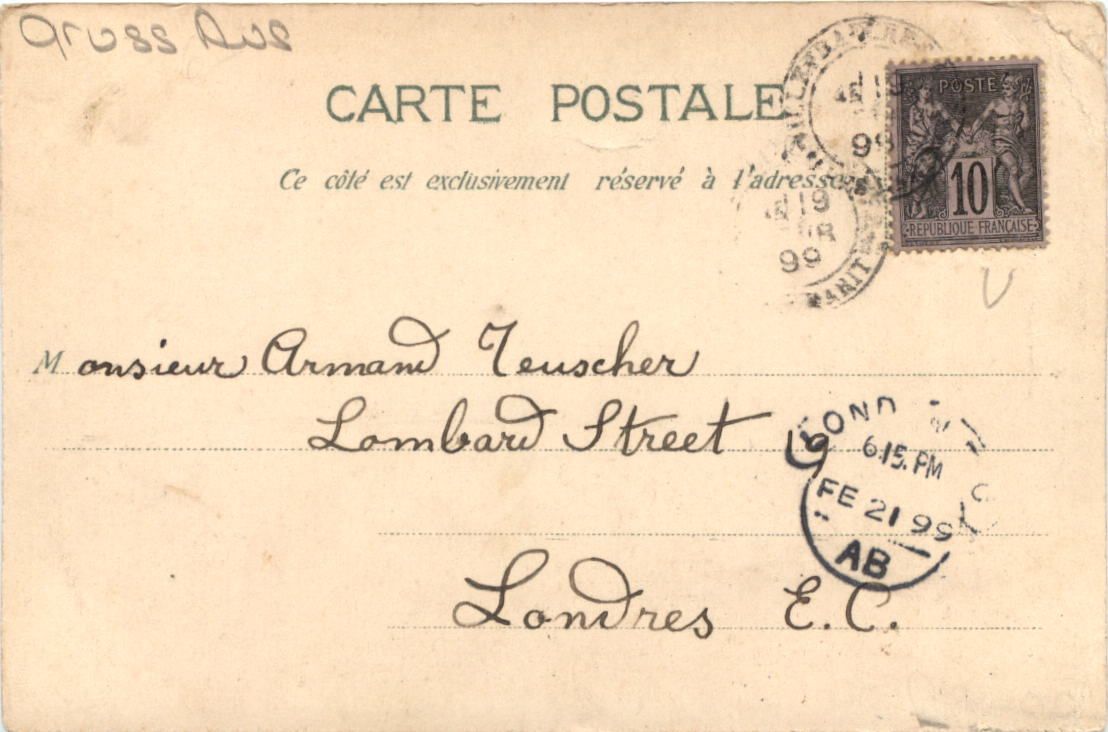 Gruss Aus
CARTE POSTALE
Ce côté est exclusivement réservé à l'adresse
POSTE
10
REPUBLIQUE FRANÇAISE
19
99
19
99
Monsieur Armand Teuscher
Lombard Street 19
Londres E.C.
LONDON
6.15.PM
FE 21 99
AB